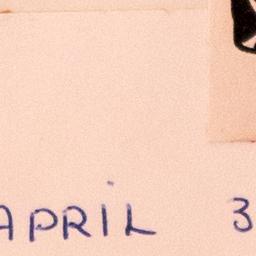 APRIL 3